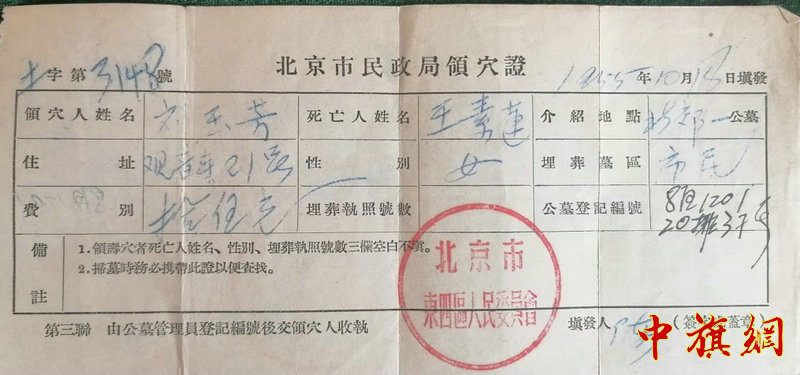 北京市民政局領穴證
土字第3148號 1955年10月13日填發
領穴人姓名 玉芳 死亡人姓名 王素蓮 介紹地點 一公墓
住址 观音寺21号 性別 女 埋葬墓區 市民
費別 埋葬執照號數 公墓登記編號 8区1201
20排37号
備註 1.領壽穴者死亡人姓名、性別、埋葬執照號數三欄空白不填。
2.掃墓時務必携帶此證以便查找。
北京市
東四區人民委員會
第三聯 由公墓管理員登記編號後交領穴人收執 填發人 (簽字或蓋章)
中旗網